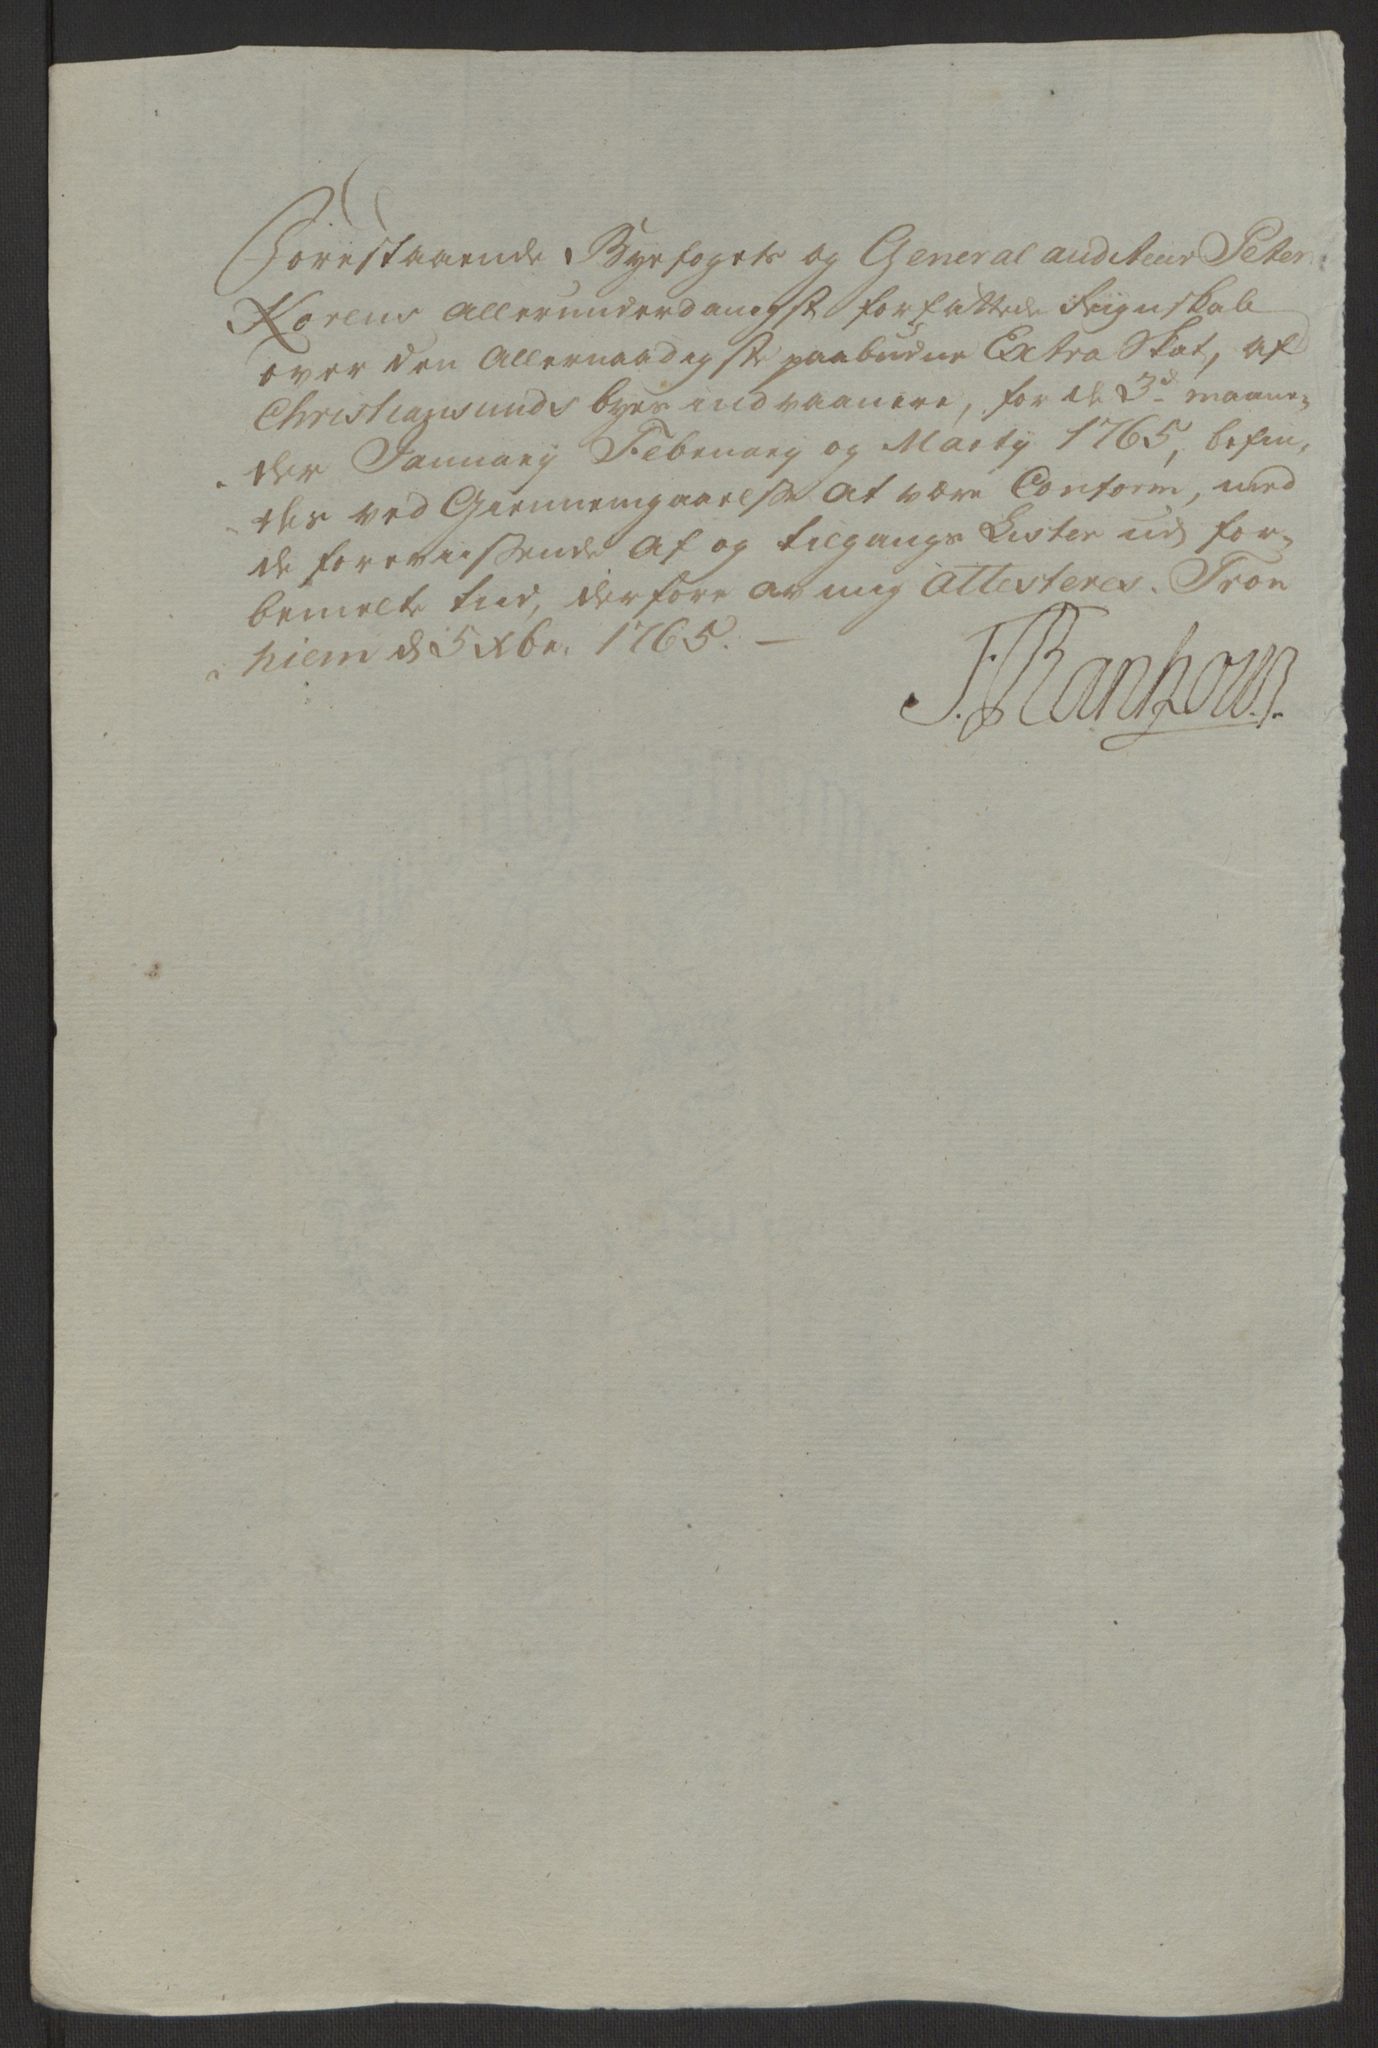 Forestaaende Byefogets og General auditeur Peter
Korens Allerunderdanigst forfattede Reignskab
over den Allernaadigste paabudne Extra Skat, af
Christiansunds byes indvaanere, for de 3de maane-
der January February og Marty 1765, befin-
des ved Giennemgaaelse at være Conform, med
de foreviisende Af og tilgangs Lister ud for-
bemelte tiid, derfore av mig attesteres. Tron
hiem d 5 Xbr. 1765. —